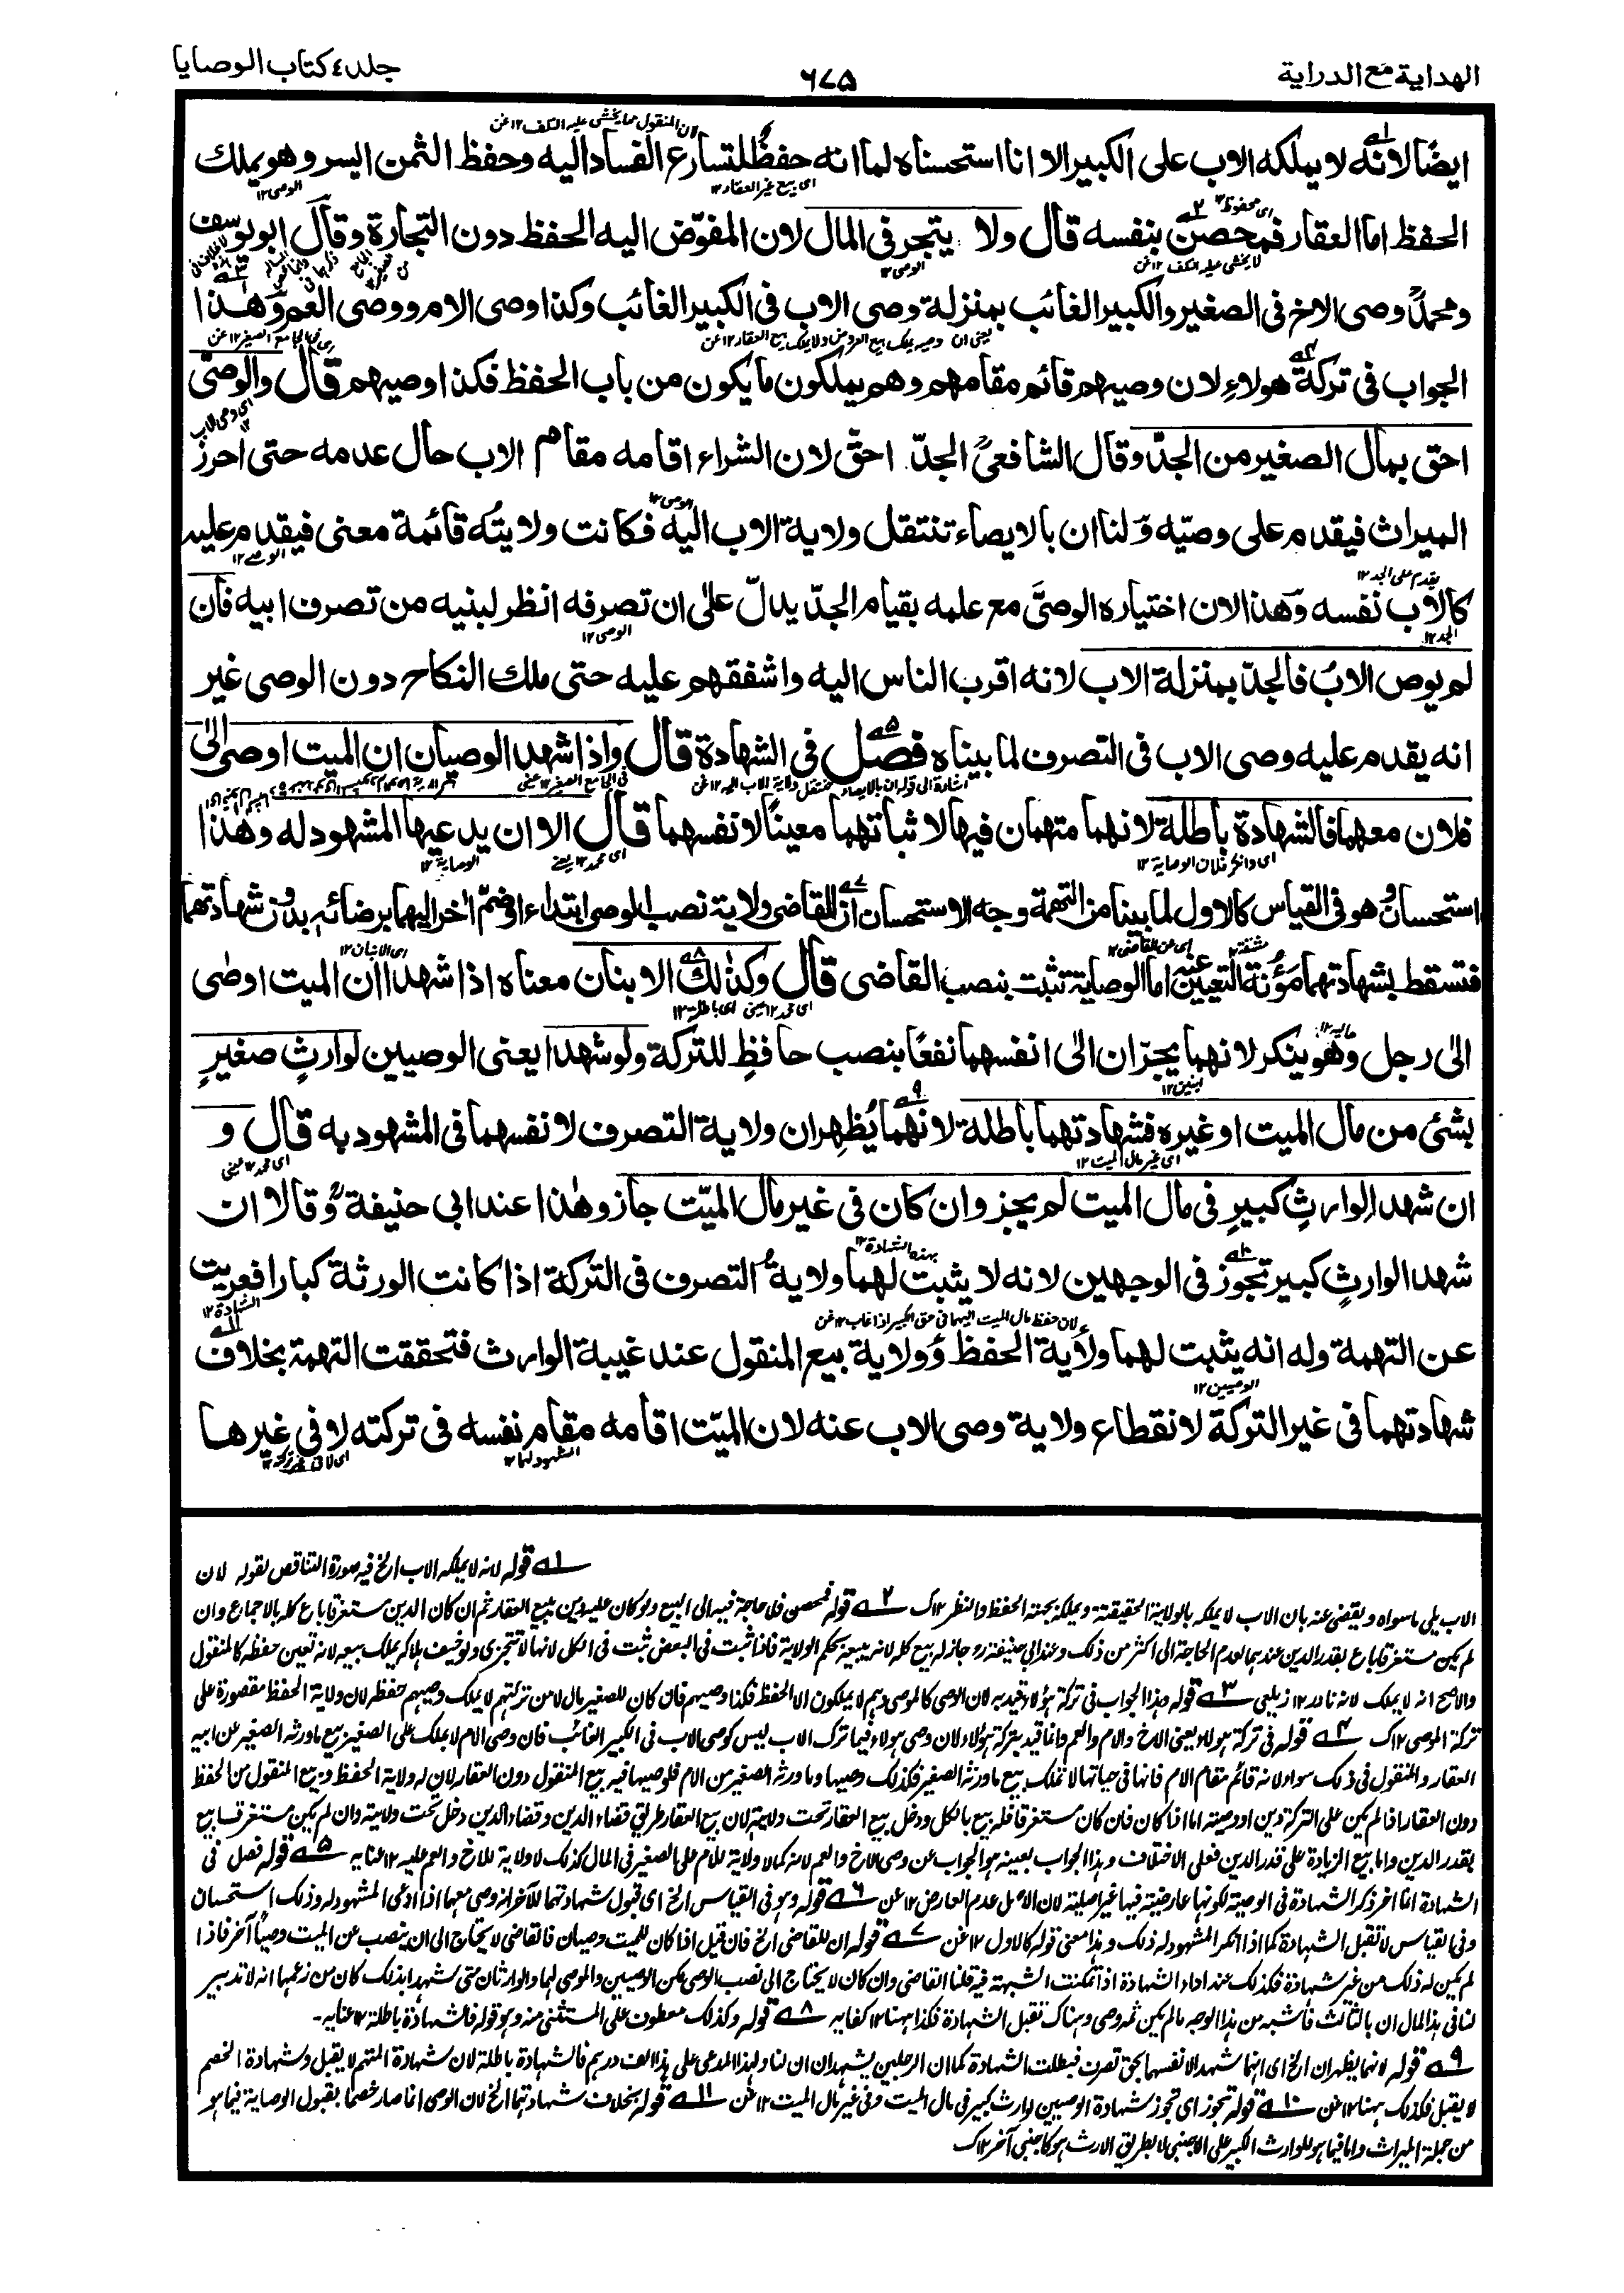 الهداية مع الدراية
٦٧٥
جلد ٤ كتاب الوصايا
ايضًا لانه لا يملكه الاب على الكبير الا انا استحسناه لما انه حفظ لتسارع الفساد اليه وحفظ الثمن ايسر وهو يملك
الحفظ اما العقار فمحصن بنفسه قال ولا يتجر في المال لان المفوّض اليه الحفظ دون التجارة وقال ابو يوسف
ومحمدٌ وصى الاخ في الصغير والكبير الغائب بمنزلة وصى الاب في الكبير الغائب وكذا وصى الام ووصى العم وهذا
الجواب في تركة هولاءِ لان وصيهم قائم مقامهم وهم يملكون ما يكون من باب الحفظ فكذا وصيهم قال والوصىّ
احق بمال الصغير من الجدّ وقال الشافعىّ الجدّ احقّ لان الشراء اقامه مقام الاب حال عدمه حتى احرز
الميراث فيقدم على وصيّه ولنا ان بالايصاء تنتقل ولاية الاب اليه فكانت ولايتُه قائمة معنى فيقدم عليه
كالاب نفسه وهذا لان اختياره الوصىَّ مع علمه بقيام الجدّ يدلّ علٰى ان تصرفه انظر لبنيه من تصرف ابيه فان
لم يوص الابُ فالجدّ بمنزلة الاب لانه اقرب الناس اليه واشفقهم عليه حتى ملك النكاح دون الوصى غير
انه يقدم عليه وصى الاب في التصرف لما بيناه فصل في الشهادة قال واذا شهد الوصيان ان الميت اوصى الٰى
فلان معهما فالشهادة باطلة لانهما متهمان فيها لاثباتهما معينًا لانفسهما قال الا ان يدعيها المشهود له وهٰذا
استحسان وهو في القياس كالاول لما بينا من التهمة وجه الاستحسان ان للقاضى ولاية نصب الوصى ابتداء او ضمّ اٰخر اليهما برضائه بدون شهادتهما
فتسقط بشهادتهما مَؤُنة التعيين عنه اما الوصاية تثبت بنصب القاضى قال وكذٰلك الابنان معناه اذا شهدا ان الميت اوصٰى
الٰى رجل وهو ينكر لانهما يجرّان الٰى انفسهما نفعًا بنصب حافظٍ للتركة ولو شهدا يعنى الوصيين لوارثٍ صغيرٍ
بشئ من مال الميت او غيره فشهادتهما باطلة لانهما يُظهران ولاية التصرف لانفسهما في المشهود به قال و
ان شهدا لوارثٍ كبيرٍ في مال الميت لم يجز وان كان في غير مال الميّت جاز وهٰذا عند ابى حنيفةؒ وقالا ان
شهدا لوارثٍ كبير تجوز في الوجهين لانه لا يثبت لهما ولاية التصرف في التركة اذا كانت الورثة كبارا فعريت
عن التهمة وله انه يثبت لهما ولاية الحفظ وولاية بيع المنقول عند غيبة الوارث فتحققت التهمة بخلاف
شهادتهما في غير التركة لانقطاع ولاية وصى الاب عنه لان الميّت اقامه مقام نفسه في تركته لا في غيرها
١ قوله لانه لا يملكه الاب الخ فيه صورة التناقض لقوله لان
الاب يلى ماسواه ويقضى عنه بان الاب لا يملكه بالولاية الحقيقة ويملكه بجهة الحفظ والنظر ١٢ك ٢ قوله فمحصن فلا حاجة فيه الى البيع ولو كان عليه دين بيع العقار ثم ان كان الدين مستغرقا باع كله بالاجماع وان
لم يكن مستغرقا باع بقدر الدين عندهما لعدم الحاجة الى اكثر من ذلك وعند ابى حنيفة رح جاز له بيع كله لانه يبيعه بحكم الولاية فاذا ثبت في البعض ثبت في الكل لانها لا تتجزى ولو خيف هلاكه يملك بيعه لانه تعين حفظه كالمنقول
والاصح انه لا يملك لانه نادر ١٢ زيلعى ٣ قوله هذا الجواب في تركة هؤلاء قيد به لان الوصى كالموصى وهم لا يملكون الا الحفظ فكذا وصيهم فان كان للصغير مال لا من تركتهم لا يملك وصيهم حفظه لان ولاية الحفظ مقصورة على
تركة الموصى ١٢ك ٤ قوله في تركة هولاء يعنى الاخ والام والعم وانما قيد بتركة هؤلاء لان وصى هولاء فيما ترك الاب ليس كوصى الاب في الكبير الغائب فان وصى الام لا يملك على الصغير بيع ما ورثه الصغير عن ابيه
العقار والمنقول في ذلك سواء لانه قائم مقام الام فانها في حياتها لا تملك بيع ما ورثه الصغير فكذلك وصيها وما ورثه الصغير من الام فلوصيها فيه بيع المنقول دون العقار لان له ولاية الحفظ وبيع المنقول من الحفظ
دون العقار اذا لم يكن على التركة دين او وصية اما اذا كان فان كان مستغرقا فله بيع الكل ودخل بيع العقار تحت ولايته لان بيع العقار طريق قضاء الدين وقضاء الدين دخل تحت ولايته وان لم يكن مستغرقا يبيع
بقدر الدين واما بيع الزيادة على قدر الدين فعلى الاختلاف وهذا الجواب بعينه هو الجواب عن وصى الاخ والعم لانه كما لا ولاية للام على الصغير في المال كذلك لا ولاية للاخ والعم عليه ١٢ عنايه ٥ قوله فصل في
الشهادة انما اخر ذكر الشهادة في الوصية لكونها عارضية فيها غير اصلية لان الاصل عدم العارض ١٢ عن ٦ قوله وهو في القياس الخ اى قبول شهادتهما للآخر انه وصى معهما اذا ادعى المشهود له وذلك استحسان
وفي القياس لا تقبل الشهادة كما اذا انكر المشهود له ذلك وهذا معنى قوله كالاول ١٢ عن ٧ قوله ان للقاضى الخ فان قيل اذا كان للميت وصيان فالقاضى لا يحتاج الى ان ينصب عن الميت وصيًا آخر فاذا
لم يكن له ذلك من غير شهادة فكذلك عند اداء الشهادة اذا تمكنت الشبهة فيه قلنا القاضى وان كان لا يحتاج الى نصب الوصى لكن الوصيين والموصى لهما والوارثان متى شهدا بذلك كان من زعمهما انه لا تدبير
لنا في هذا المال ان بالثالث فاشبه من هذا الوجه ما لم يكن ثمه وصى وهناك تقبل الشهادة فكذا ههنا ١٢ كفايه ٨ قوله وكذلك معطوف على المستثنى منه وهو قوله فالشهادة باطلة ١٢ عنايه۔
٩ قوله لانهما يظهران الخ اى انهما شهدا لانفسهما بحق تصرف فبطلت الشهادة كما ان الرجلين يشهدان ان لنا ولهذا المدعى على هذا الف درهم فالشهادة باطلة لان شهادة المتهم لا يقبل وشهادة الخصم
لا يقبل فكذلك ههنا ١٢ عن ١٠ قوله تجوز اى تجوز شهادة الوصيين لوارث كبير في مال الميت وفي غير مال الميت ١٢ عن ١١ قوله بخلاف شهادتهما الخ لان الوصى انما صار خصما بقبول الوصاية فيما هو
من جملة الميراث واما فيما هو للوارث الكبير على الاجنبى لا بطريق الارث هو كاجنبى آخر ١٢ك